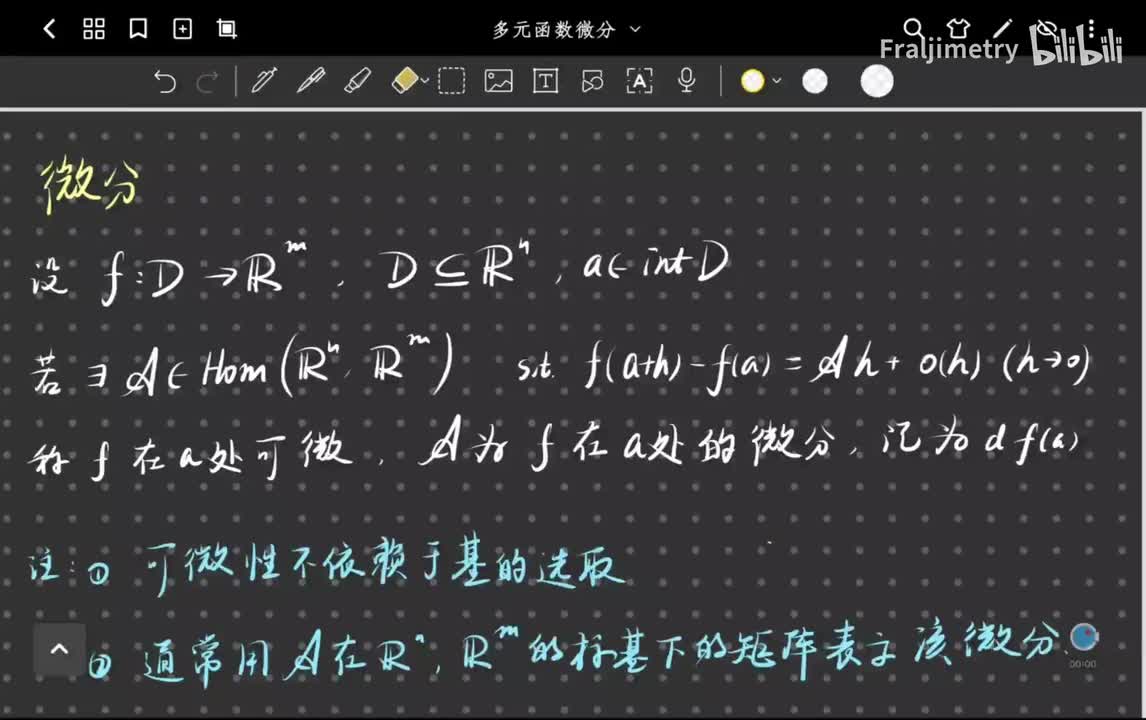 多元函数微分
Fraljimetry bilibili
微分
设 f:D→ℝᵐ, D⊆ℝⁿ, a∈int D
若∃𝒜∈Hom(ℝⁿ, ℝᵐ) s.t. f(a+h)-f(a)=𝒜h+o(h) (h→0)
称 f 在 a 处可微, 𝒜为 f 在 a 处的微分, 记为 df(a)
注:① 可微性不依赖于基的选取
② 通常用𝒜在ℝⁿ, ℝᵐ的标基下的矩阵表示该微分.
00:00